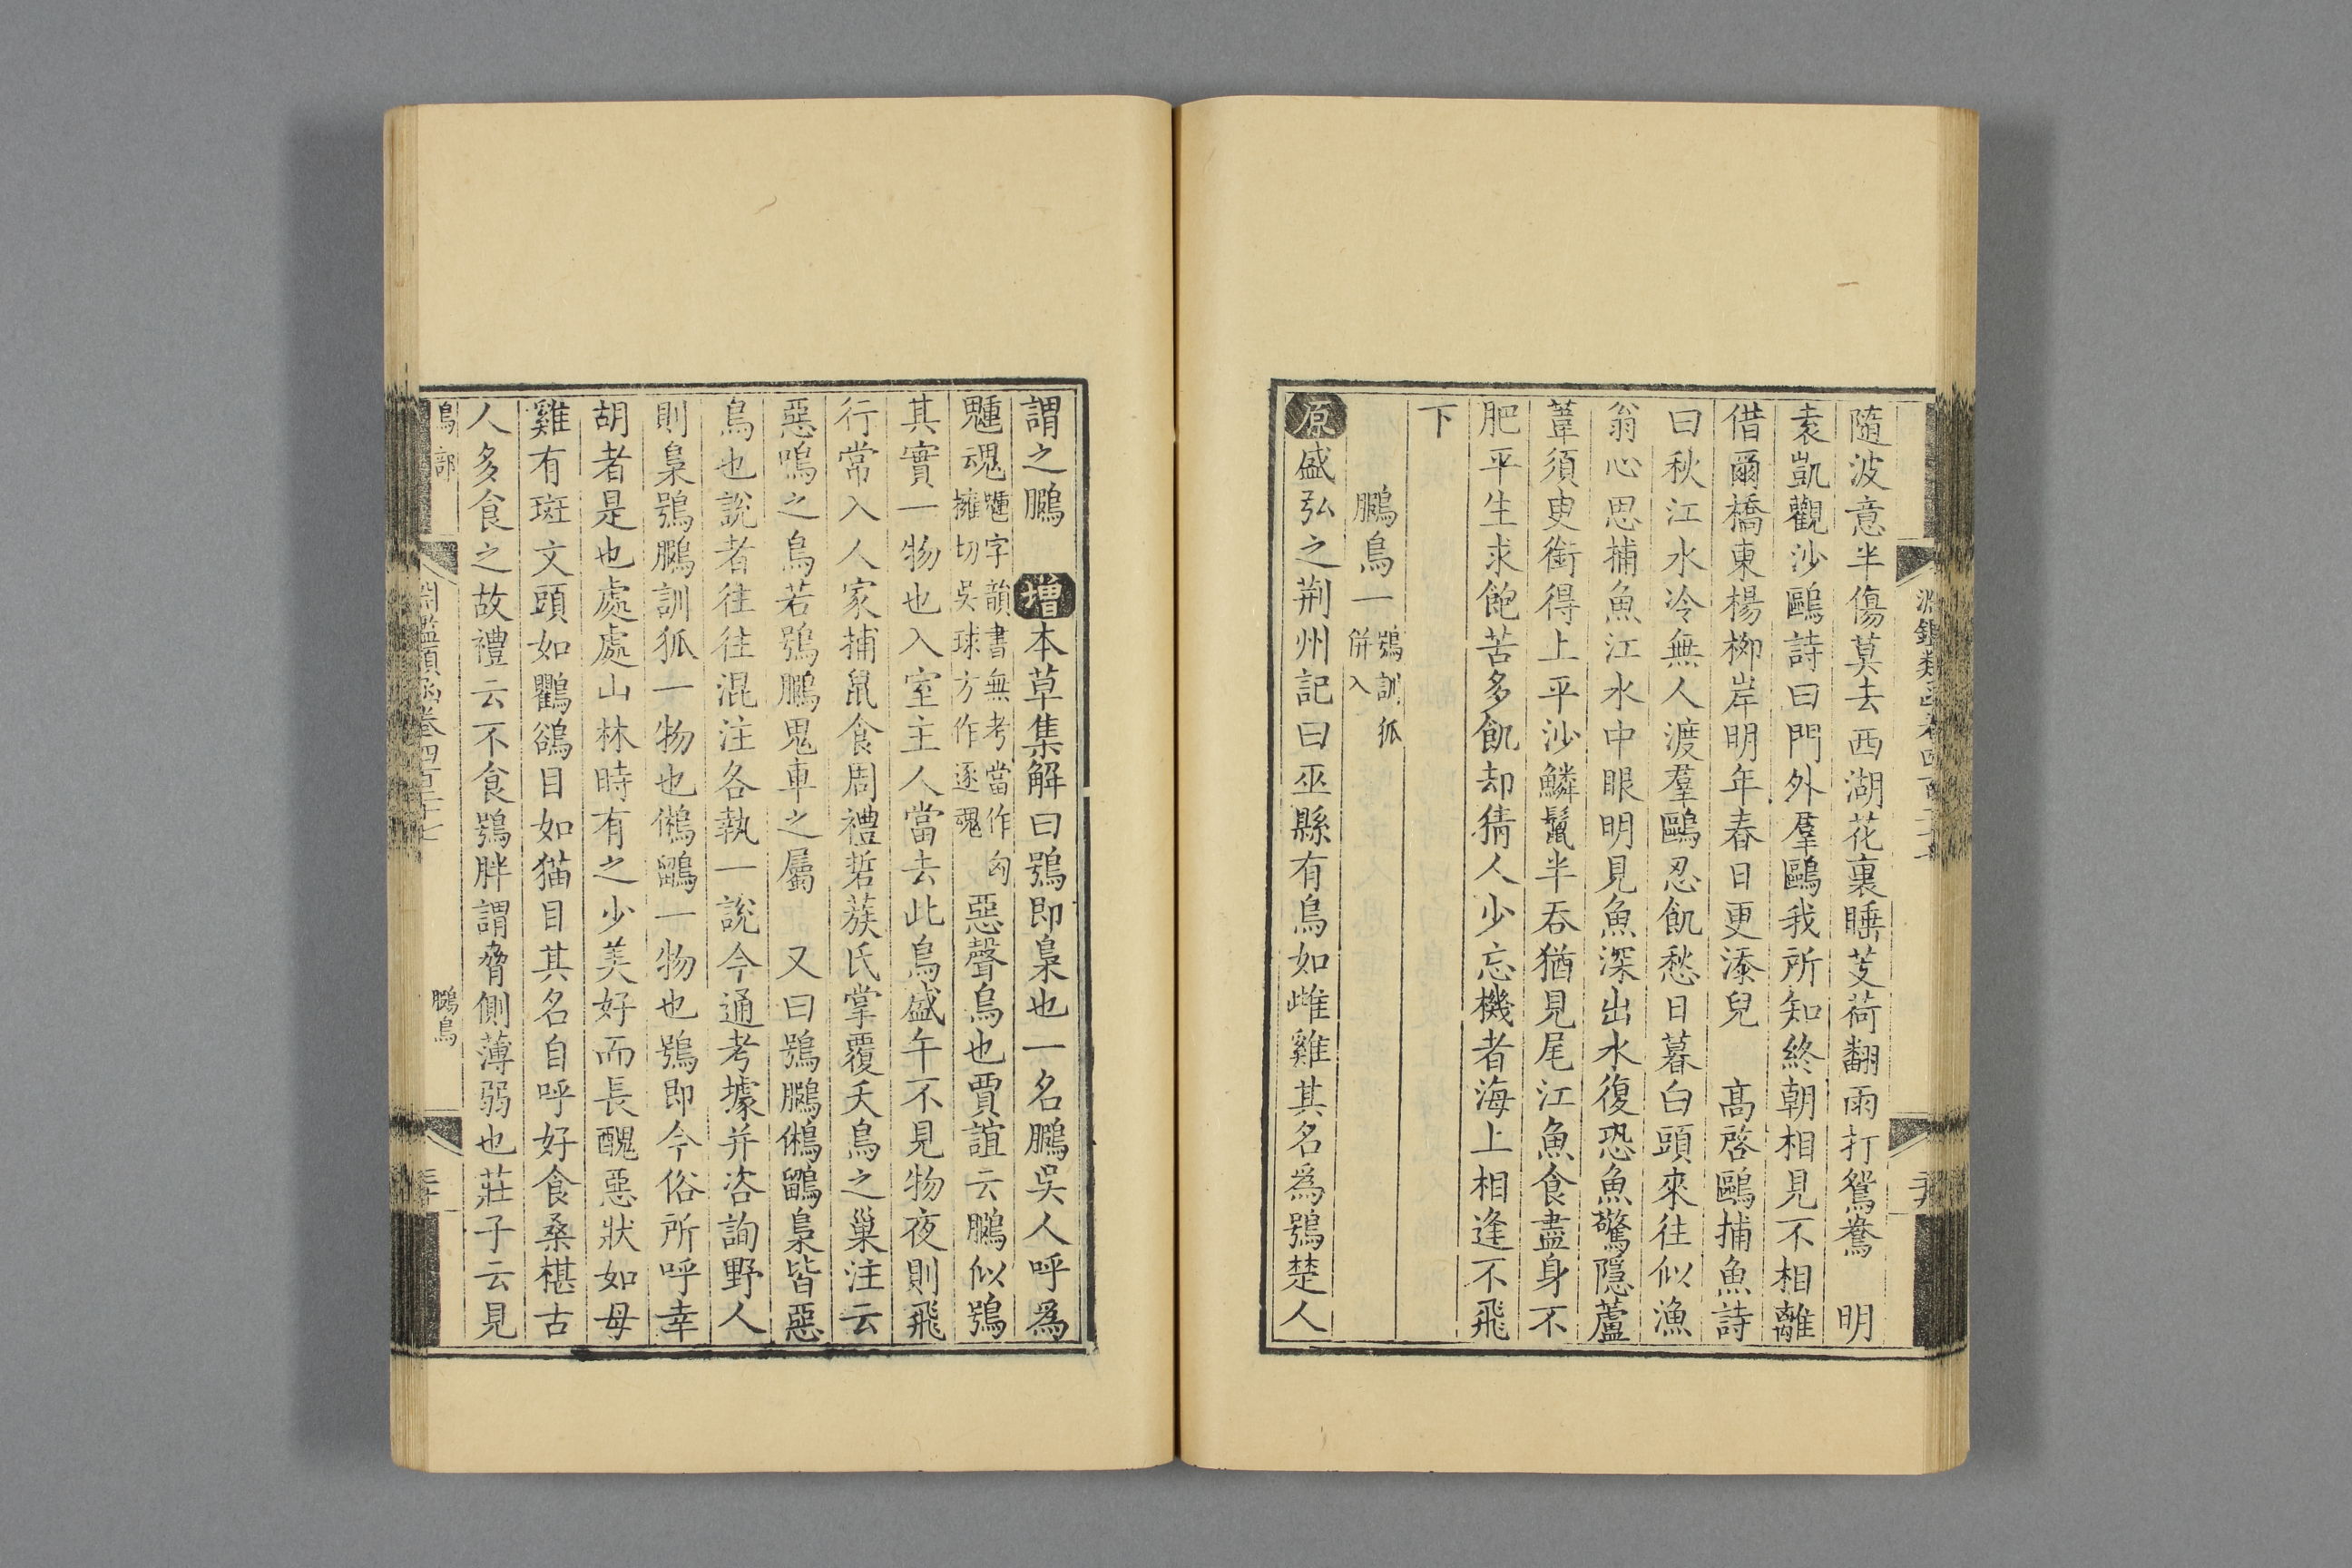 隨波意半傷莫去西湖花裏睡芰荷翻雨打鴛鴦　明
袁凱觀沙鷗詩曰門外羣鷗我所知終朝相見不相離
借爾橋東楊柳岸明年春日更添兒　高啓鷗捕魚詩
曰秋江水冷無人渡羣鷗忍飢愁日暮白頭來往似漁
翁心思捕魚江水中眼明見魚深出水復恐魚驚隱蘆
葦須臾銜得上平沙鱗鬛半吞猶見尾江魚食盡身不
肥平生求飽苦多飢却猜人少忘機者海上相逢不飛
下
鵩鳥一鴞訓狐併入
原盛弘之荆州記曰巫縣有鳥如雌雞其名爲鴞楚人
謂之鵩　增本草集解曰鴞即梟也一名鵩吳人呼爲
魖魂魖字韻書無考當作匈擁切吳球方作逐魂惡聲鳥也賈誼云鵩似鴞
其實一物也入室主人當去此鳥盛午不見物夜則飛
行常入人家捕鼠食周禮硩蔟氏掌覆夭鳥之巢注云
惡鳴之鳥若鴞鵩鬼車之屬　又曰鴞鵩鵂鶹梟皆惡
鳥也說者往往混注各執一說今通考據并咨詢野人
則梟鴞鵩訓狐一物也鵂鶹一物也鴞即今俗所呼幸
胡者是也處處山林時有之少美好而長醜惡狀如母
雞有斑文頭如鸜鵒目如猫目其名自呼好食桑椹古
人多食之故禮云不食鴞胖謂脅側薄弱也莊子云見
鳥部
鵩鳥